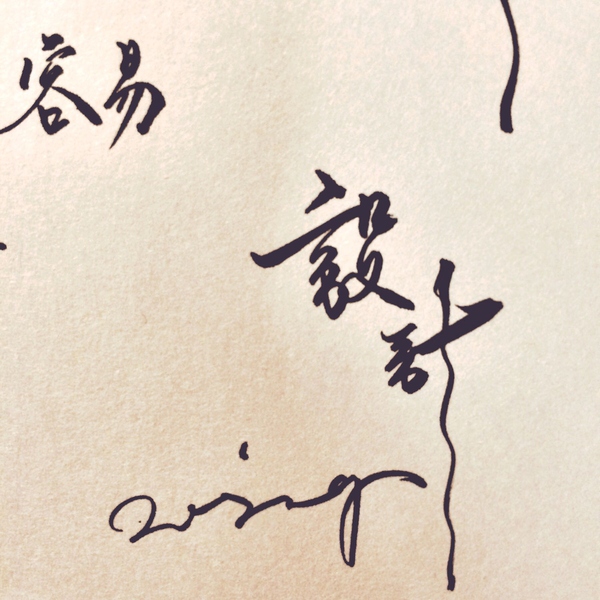 容易
設計